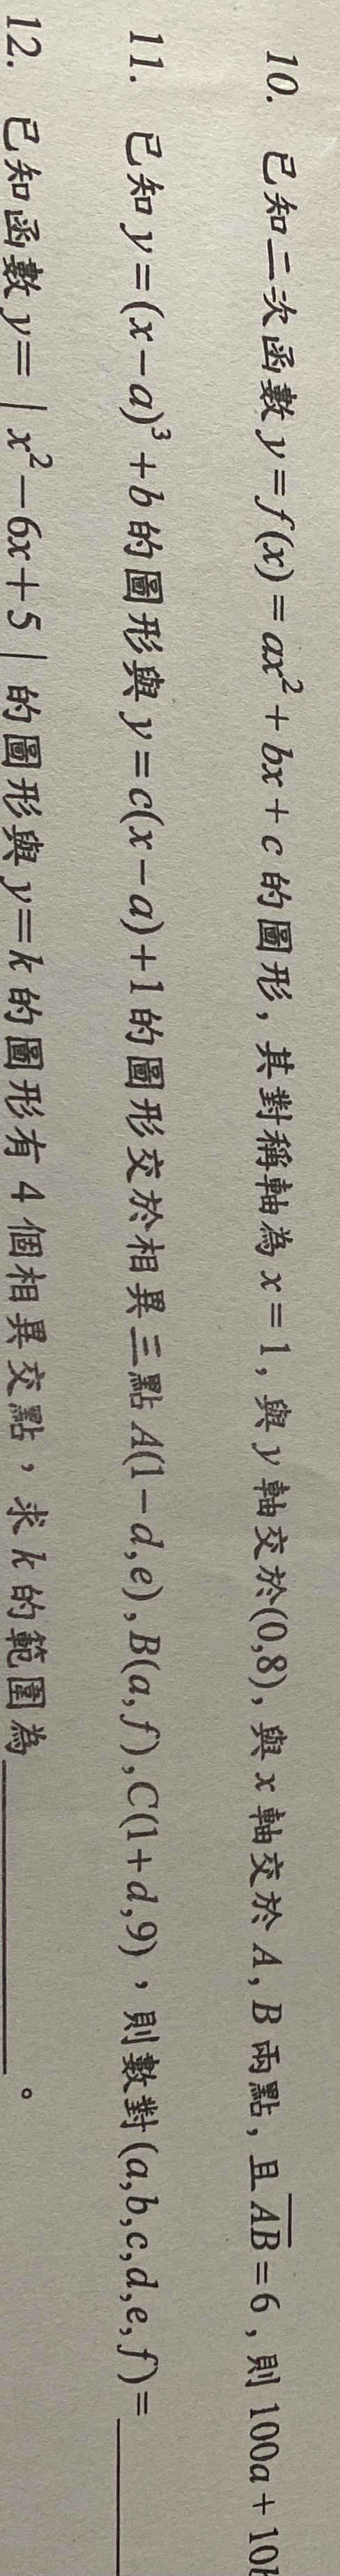 10. 已知二次函數 y=f(x)=ax²+bx+c 的圖形, 其對稱軸為 x=1, 與 y 軸交於(0,8), 與 x 軸交於 A, B 兩點, 且 \overline{AB}=6, 則 100a+10
11. 已知 y=(x−a)³+b 的圖形與 y=c(x−a)+1 的圖形交於相異三點 A(1−d,e), B(a,f), C(1+d,9), 則數對(a,b,c,d,e,f)=
12. 已知函數 y=|x²−6x+5| 的圖形與 y=k 的圖形有 4 個相異交點, 求 k 的範圍為________。